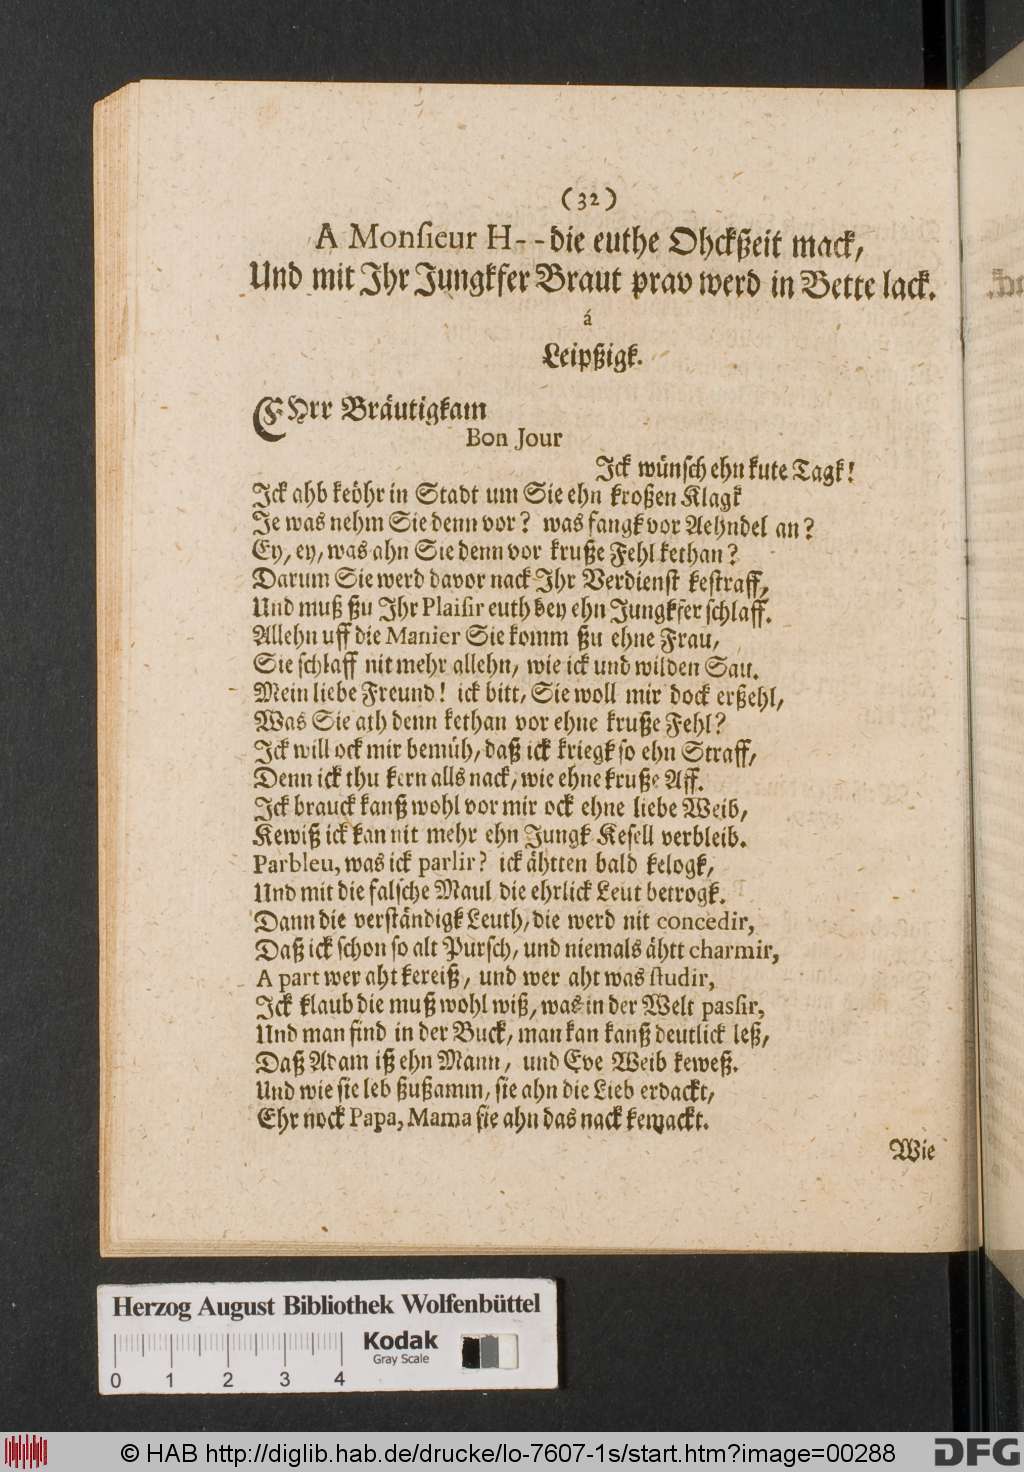 (32)
A Monsieur H-- die euthe Ohckßeit mack,
Und mit Ihr Jungkfer Braut prav werd in Bette lack.
á
Leipßigk.
EHrr Bräutigkam
Bon Jour
Ick wünsch ehn kute Tagk!
Ick ahb keöhr in Stadt um Sie ehn kroßen Klagk
Je was nehm Sie denn vor? was fangk vor Aehndel an?
Ey, ey, was ahn Sie denn vor kruße Fehl kethan?
Darum Sie werd davor nack Ihr Verdienst kestraff,
Und muß ßu Ihr Plaisir euth bey ehn Jungkfer schlaff.
Allehn uff die Manier Sie komm ßu ehne Frau,
Sie schlaff nit mehr allehn, wie ick und wilden Sau.
Mein liebe Freund! ick bitt, Sie woll mir dock erßehl,
Was Sie ath denn kethan vor ehne kruße Fehl?
Ick will ock mir bemüh, daß ick kriegk so ehn Straff,
Denn ick thu kern alls nack, wie ehne kruße Aff.
Ick brauck kanß wohl vor mir ock ehne liebe Weib,
Kewiß ick kan nit mehr ehn Jungk Kesell verbleib.
Parbleu, was ick parlir? ick ähtten bald kelogk,
Und mit die falsche Maul die ehrlick Leut betrogk.
Dann die verständigk Leuth, die werd nit concedir,
Daß ick schon so alt Pursch, und niemals ähtt charmir,
A part wer aht kereiß, und wer aht was studir,
Ick klaub die muß wohl wiß, was in der Welt passir,
Und man find in der Buck, man kan kanß deutlick leß,
Daß Adam iß ehn Mann, und Eve Weib keweß.
Und wie sie leb ßußamm, sie ahn die Lieb erdackt,
Ehr nock Papa, Mama sie ahn das nack kemackt.
Wie
Herzog August Bibliothek Wolfenbüttel
Kodak
Gray Scale
0 1 2 3 4
© HAB http://diglib.hab.de/drucke/lo-7607-1s/start.htm?image=00288
DFG